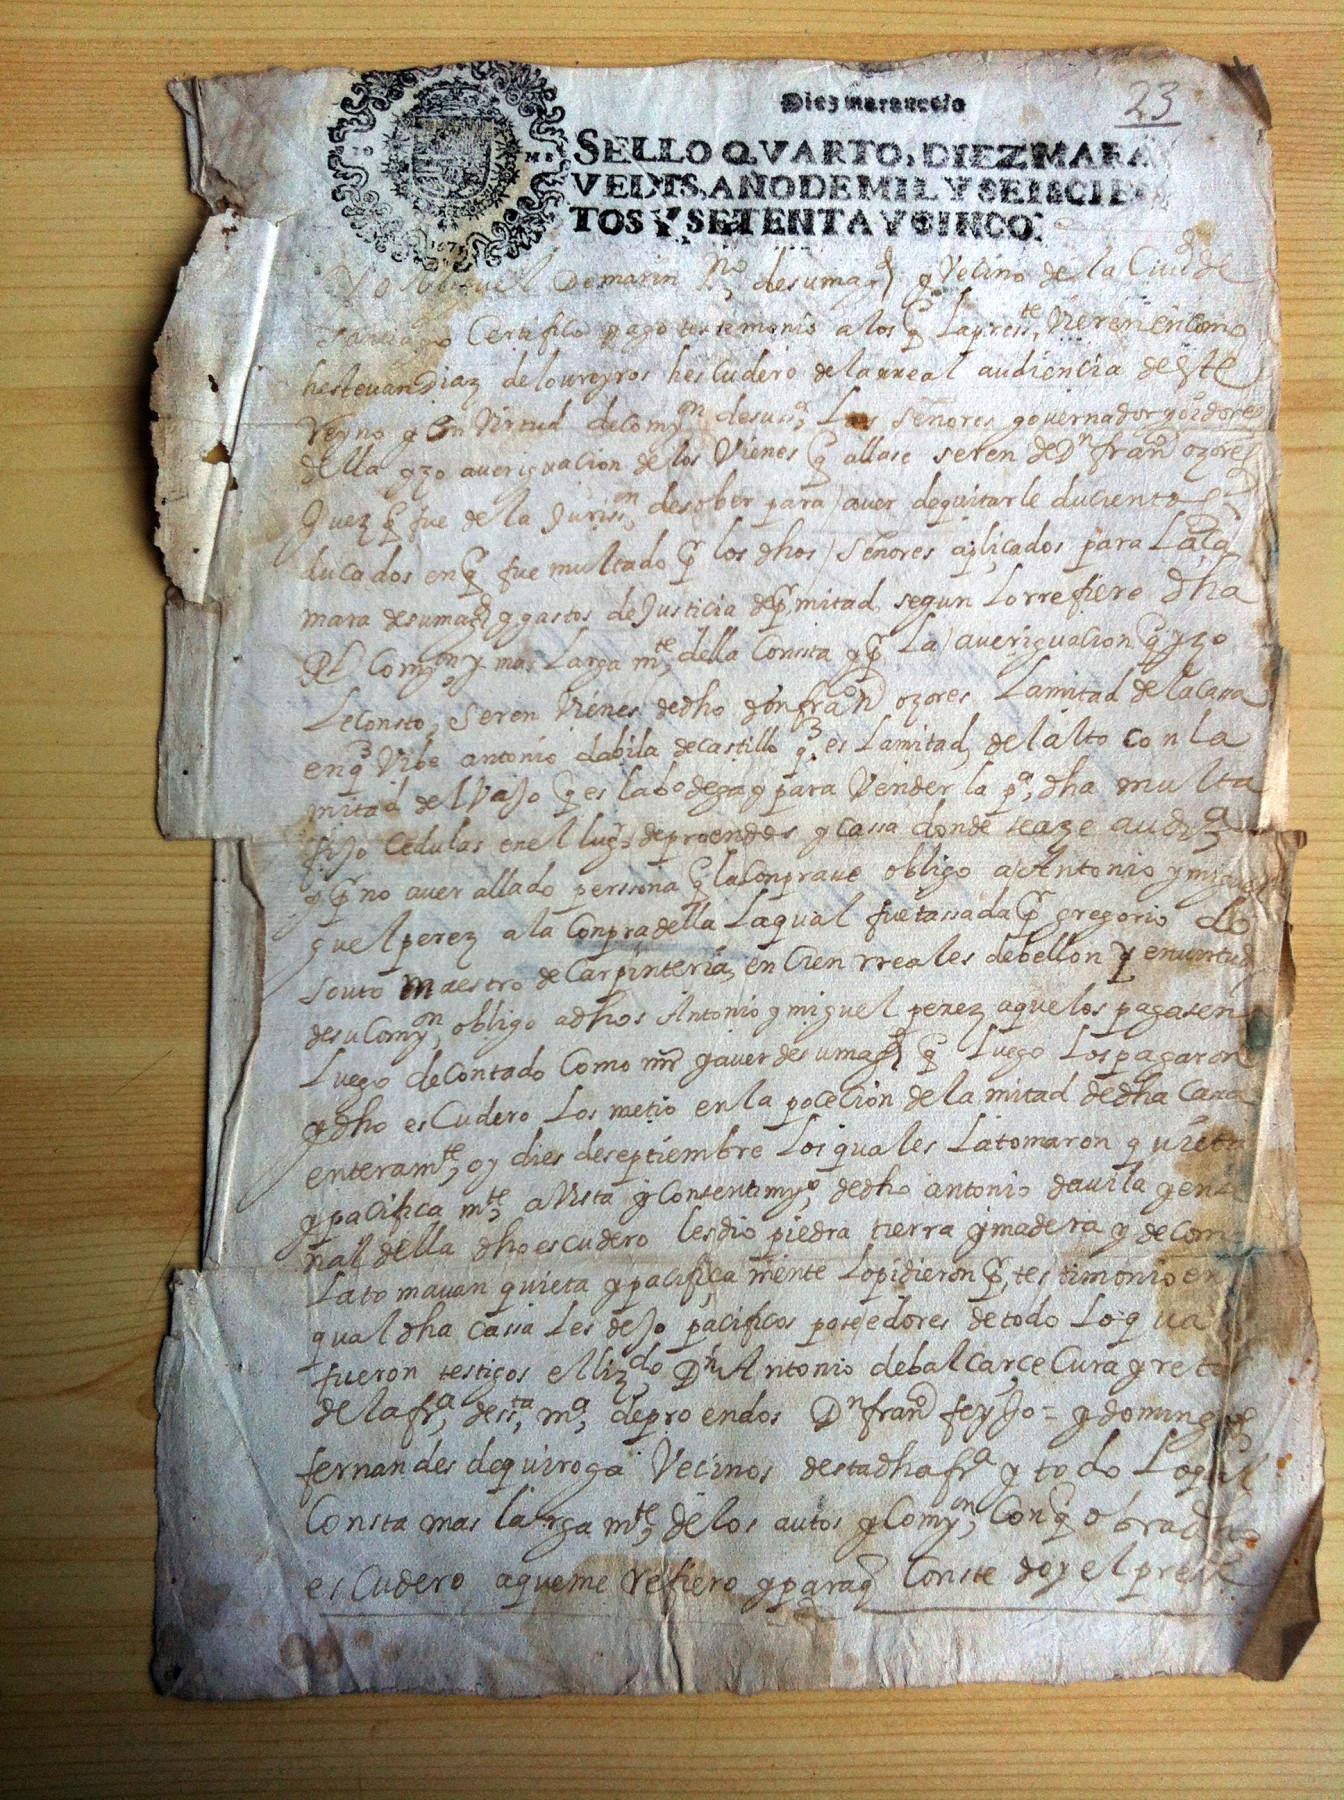 Diez maravedis
23
SELLO QVARTO, DIEZ MARA
VEDIS, AÑO DE MIL Y SEISCIEN
TOS Y SETENTA Y CINCO.
1675
Yo Miguel de marin sno, de su magd y Vecino de la Ciud de
santiago Certifico y ago testemonio a los q La preste, Vieren en como
hestevan Diaz de loureyros hescudero de la rreal audiencia deste
Reyno y en Virtud de comyon de sus, Los señores governador y oidores
della yzo averiguacion de los Vienes q allase seren de Dn franco ozores
Juez q fue de la Jurison, de sober para aver de quitarle ducientos
ducados en q fue multado pr los dhos Señores aplicados para La Ca
mara de su magd y gastos de Justicia de pr mitad, segun Lo rrefiere dha
Rl Comyon y mas Larga mte, della Consta y pr La averiguacion q yzo
Le consto, Seren Vienes de dho don franco ozores La mitad de la casa
en q Vibe antonio dabila de castillo q es La mitad, del alto con la
mitad del Vajo q es la bodega y para Vender la pa, dha multa
fijo cedulas en el lugr, de proendos y cassa donde se aze auda
y pr no aver allado perssona q la conprase obligo a Antonio y mi
guel perez a la Conpra della La qual fue tassada pr gregorio do
souto maestro de Carpinteria, en Cien rreales de bellon y en virtud
de su Comyon, obligo a dhos Antonio y miguel perez a que los pagasen
Luego de Contado Como mrs y aver de su magd q Luego Los pagaron
y dho esCudero Los metio en la poceCion de la mitad de dha Casa
enteramte, oy dies de septiembre Los quales La tomaron quieta
y pacifica mte, a Vista y Consentimyo, de dho antonio davila y en se
ñal della dho escudero les dio piedra tierra y madera y de Como
La tomavan quieta y pacifica mente Lo pidieron pr testimonio en
qual dha Cassa Les dejo pacificos poseedores de todo Lo qual
fueron testigos el lizdo, Dn Antonio de balcarce Cura y retor
de la fra, de sta, ma, de proendos Dn franco feyjo = y domingos
fernandes de quiroga Vecinos desta dha fra y todo Lo qual
Consta mas larga mte, de los autos y Comyon, Con q obra dho
esCudero a que me refiero y para q Conste doy el preste